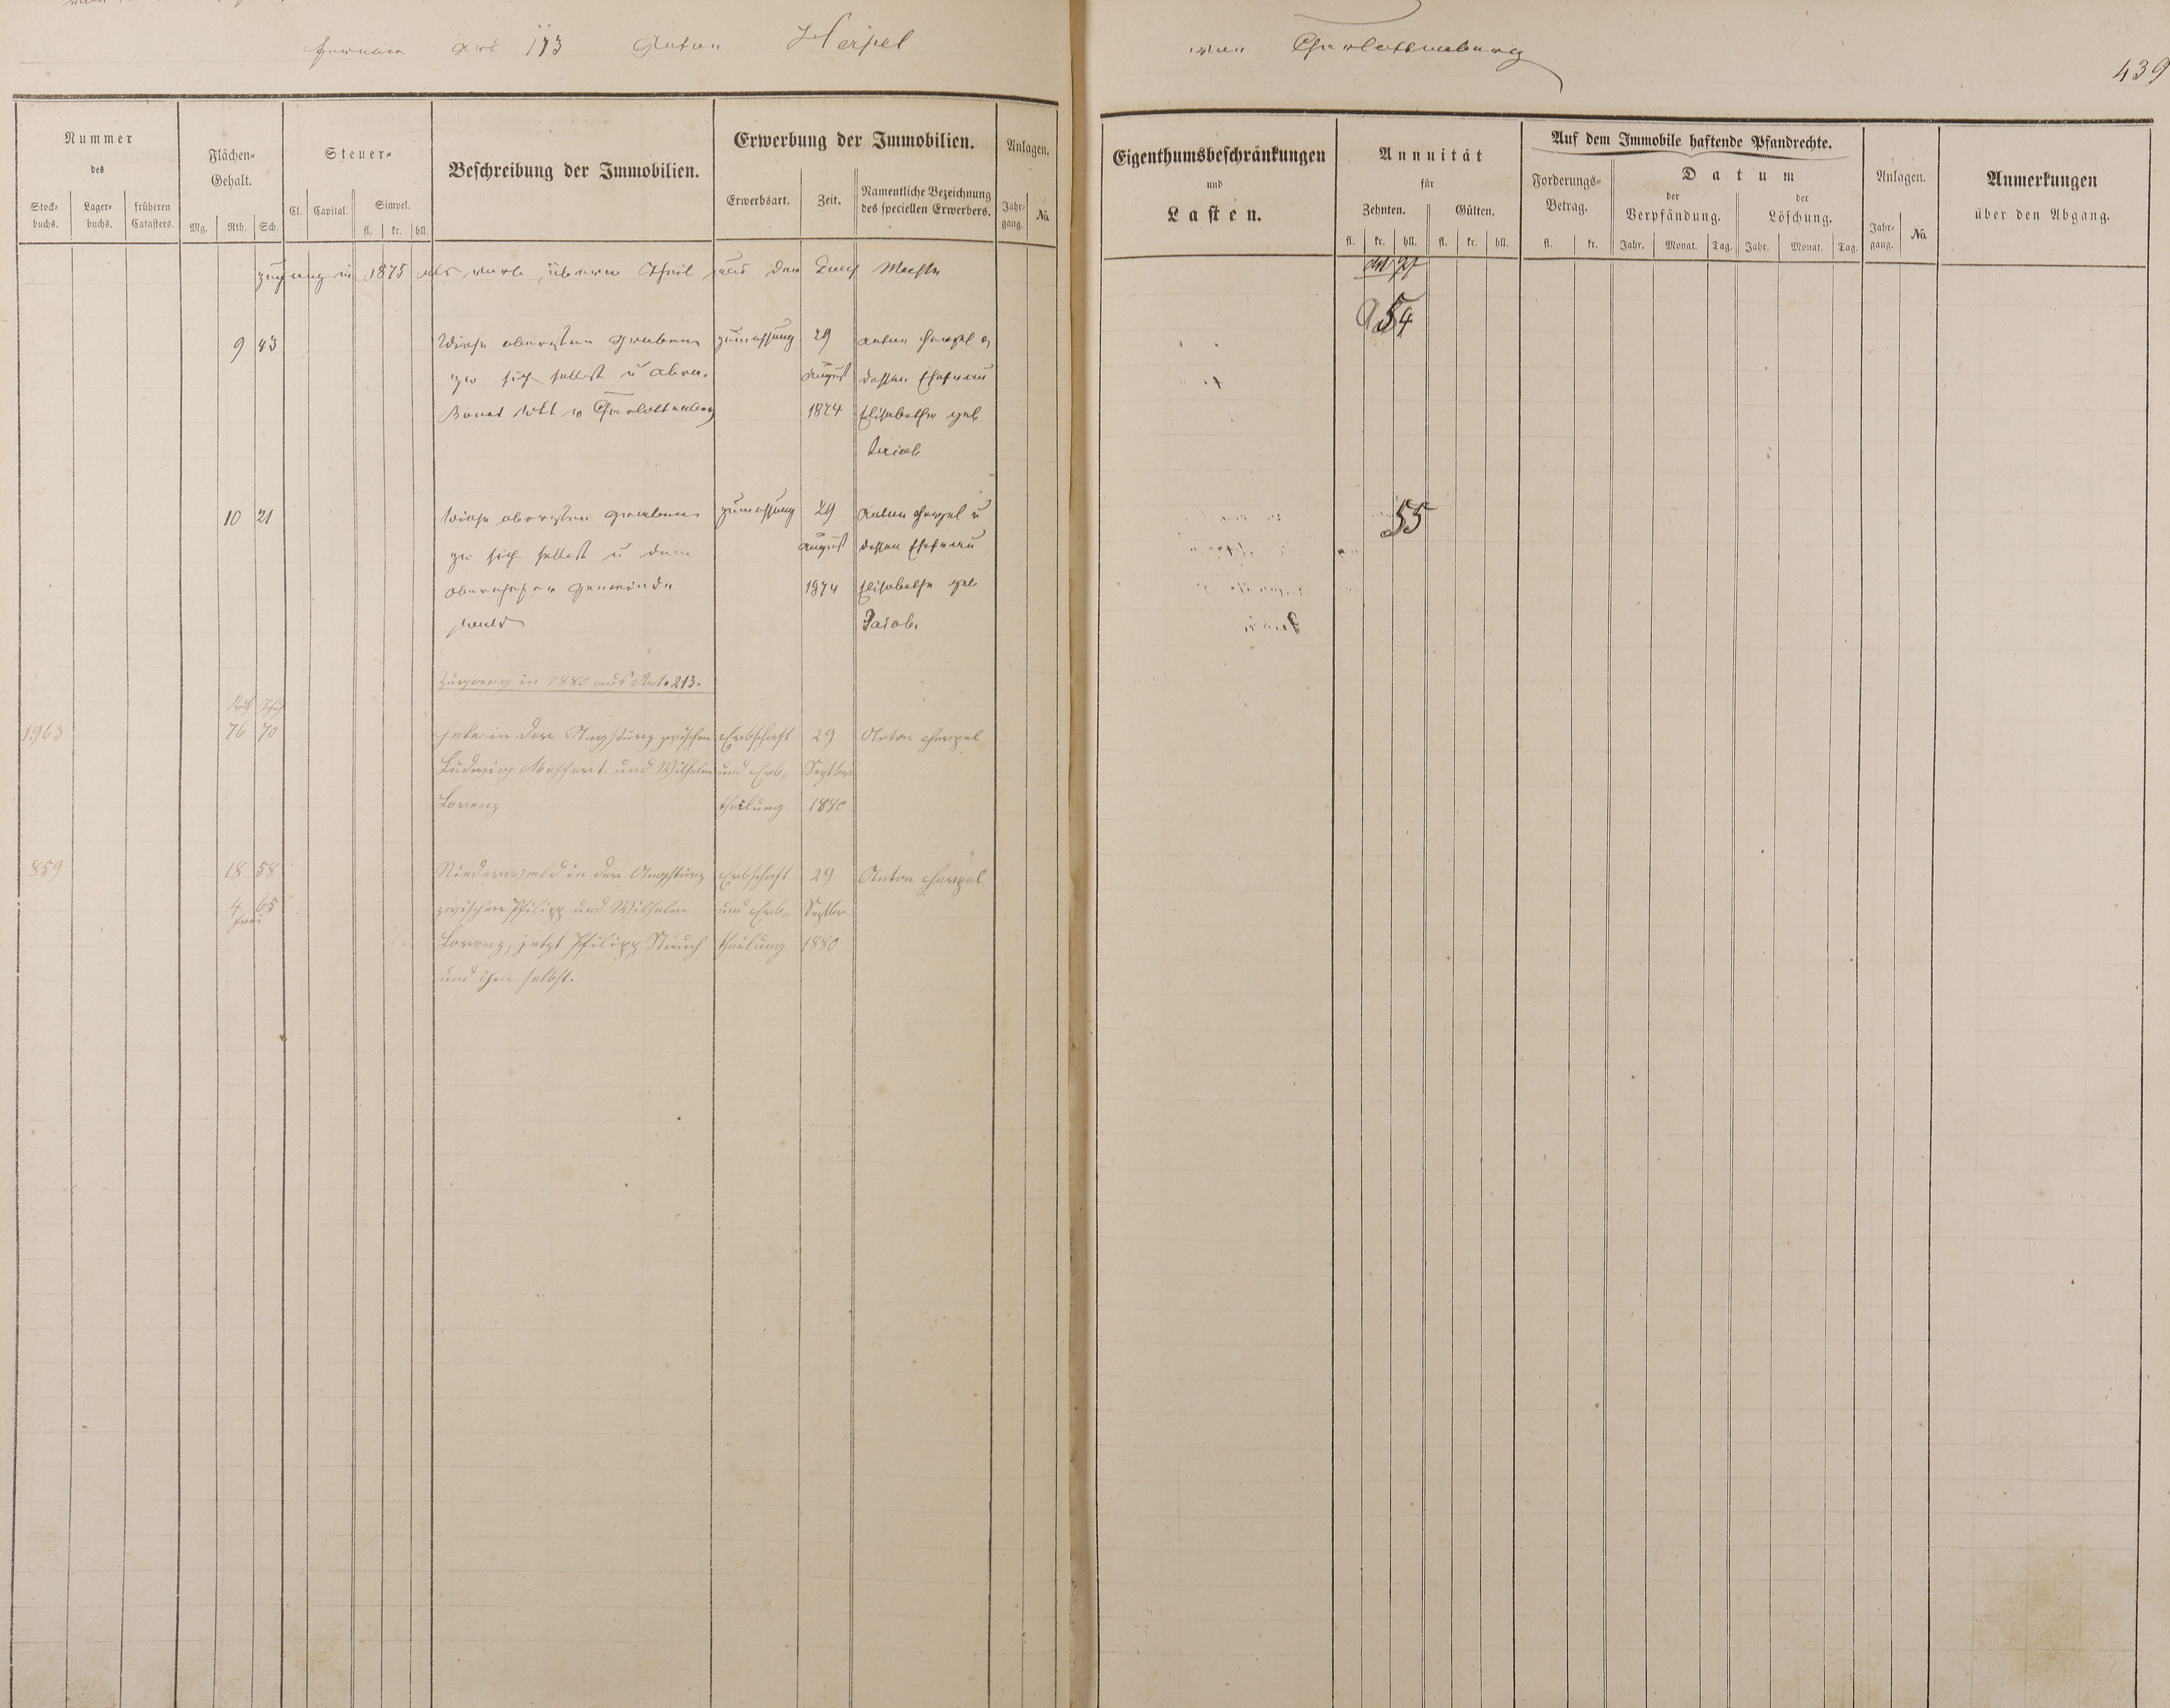 Art 173 Anton Herpel
von Charlottenberg
439
Nummer
des
Stock-
buchs.
Lager-
buchs.
früheren
Catasters.
Flächen-
Gehalt.
Mg. Rth. Sch.
Steuer-
Cl. Capital. Simpel.
fl. kr. hll.
Beschreibung der Immobilien.
Erwerbung der Immobilien.
Erwerbsart. Zeit.
Namentliche Bezeichnung
des speciellen Erwerbers.
Anlagen.
Jahr-
gang.
No.
Eigenthumsbeschränkungen
und
Lasten.
Annuität
für
Zehnten. Gülten.
fl. kr. hll. fl. kr. hll.
Auf dem Immobile haftende Pfandrechte.
Forderungs-
Betrag.
fl. kr.
Datum
der
Verpfändung.
der
Löschung.
Jahr. Monat. Tag. Jahr. Monat. Tag.
Anlagen.
Jahr-
gang.
No.
Anmerkungen
über den Abgang.
Zugang in 1875 Theil aus der
54
9 43 Wiese zumessung 29 Anton Herpel
zu sich selbst u August dessen Ehefrau
zu Charlottenberg 1874 Elisabetha geb
Jacob
10 21 Wiese zumessung 29 Anton Herpel u 55
zu sich selbst u dem August dessen Ehefrau
Gemeinde 1874 Elisabetha geb
wald Jacob.
Zugang in 1880 aus Art. 213.
Rth Sch
1963 76 70 in der zwischen Erbschaft 29 Anton Herpel
Ludwig Meffert und Wilhelm und Erb- Septber
Lorenz theilung 1880
859 18 58 Niederwald in der Erbschaft 29 Anton Herpel
4 65 zwischen Philipp und Wilhelm und Erb- Septbr
frei
Lorenz, jetzt Philipp theilung 1880
und ihm selbst.